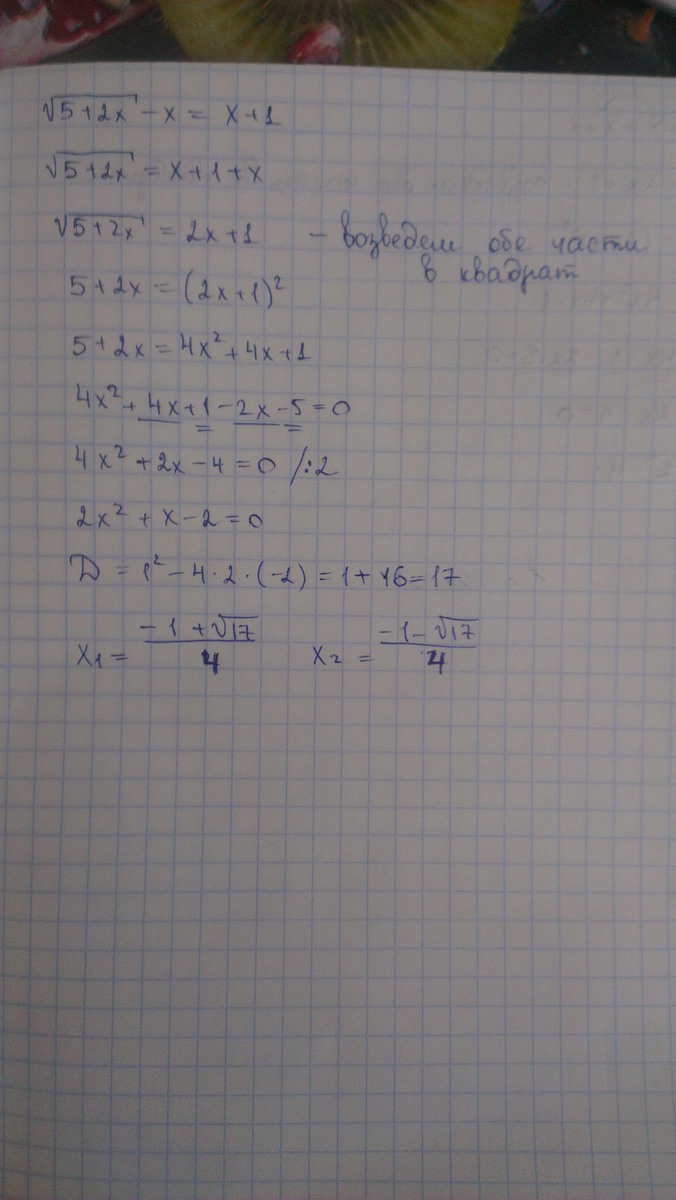 √5+2x - x = x+1
√5+2x = x+1+x
√5+2x = 2x+1 – возведем обе части
в квадрат
5+2x = (2x+1)²
5+2x = 4x²+4x+1
4x²+4x+1-2x-5=0
4x²+2x-4=0 /:2
2x²+x-2=0
D = 1²-4·2·(-2)=1+16=17
x₁ = (-1+√17)/4 x₂ = (-1-√17)/4